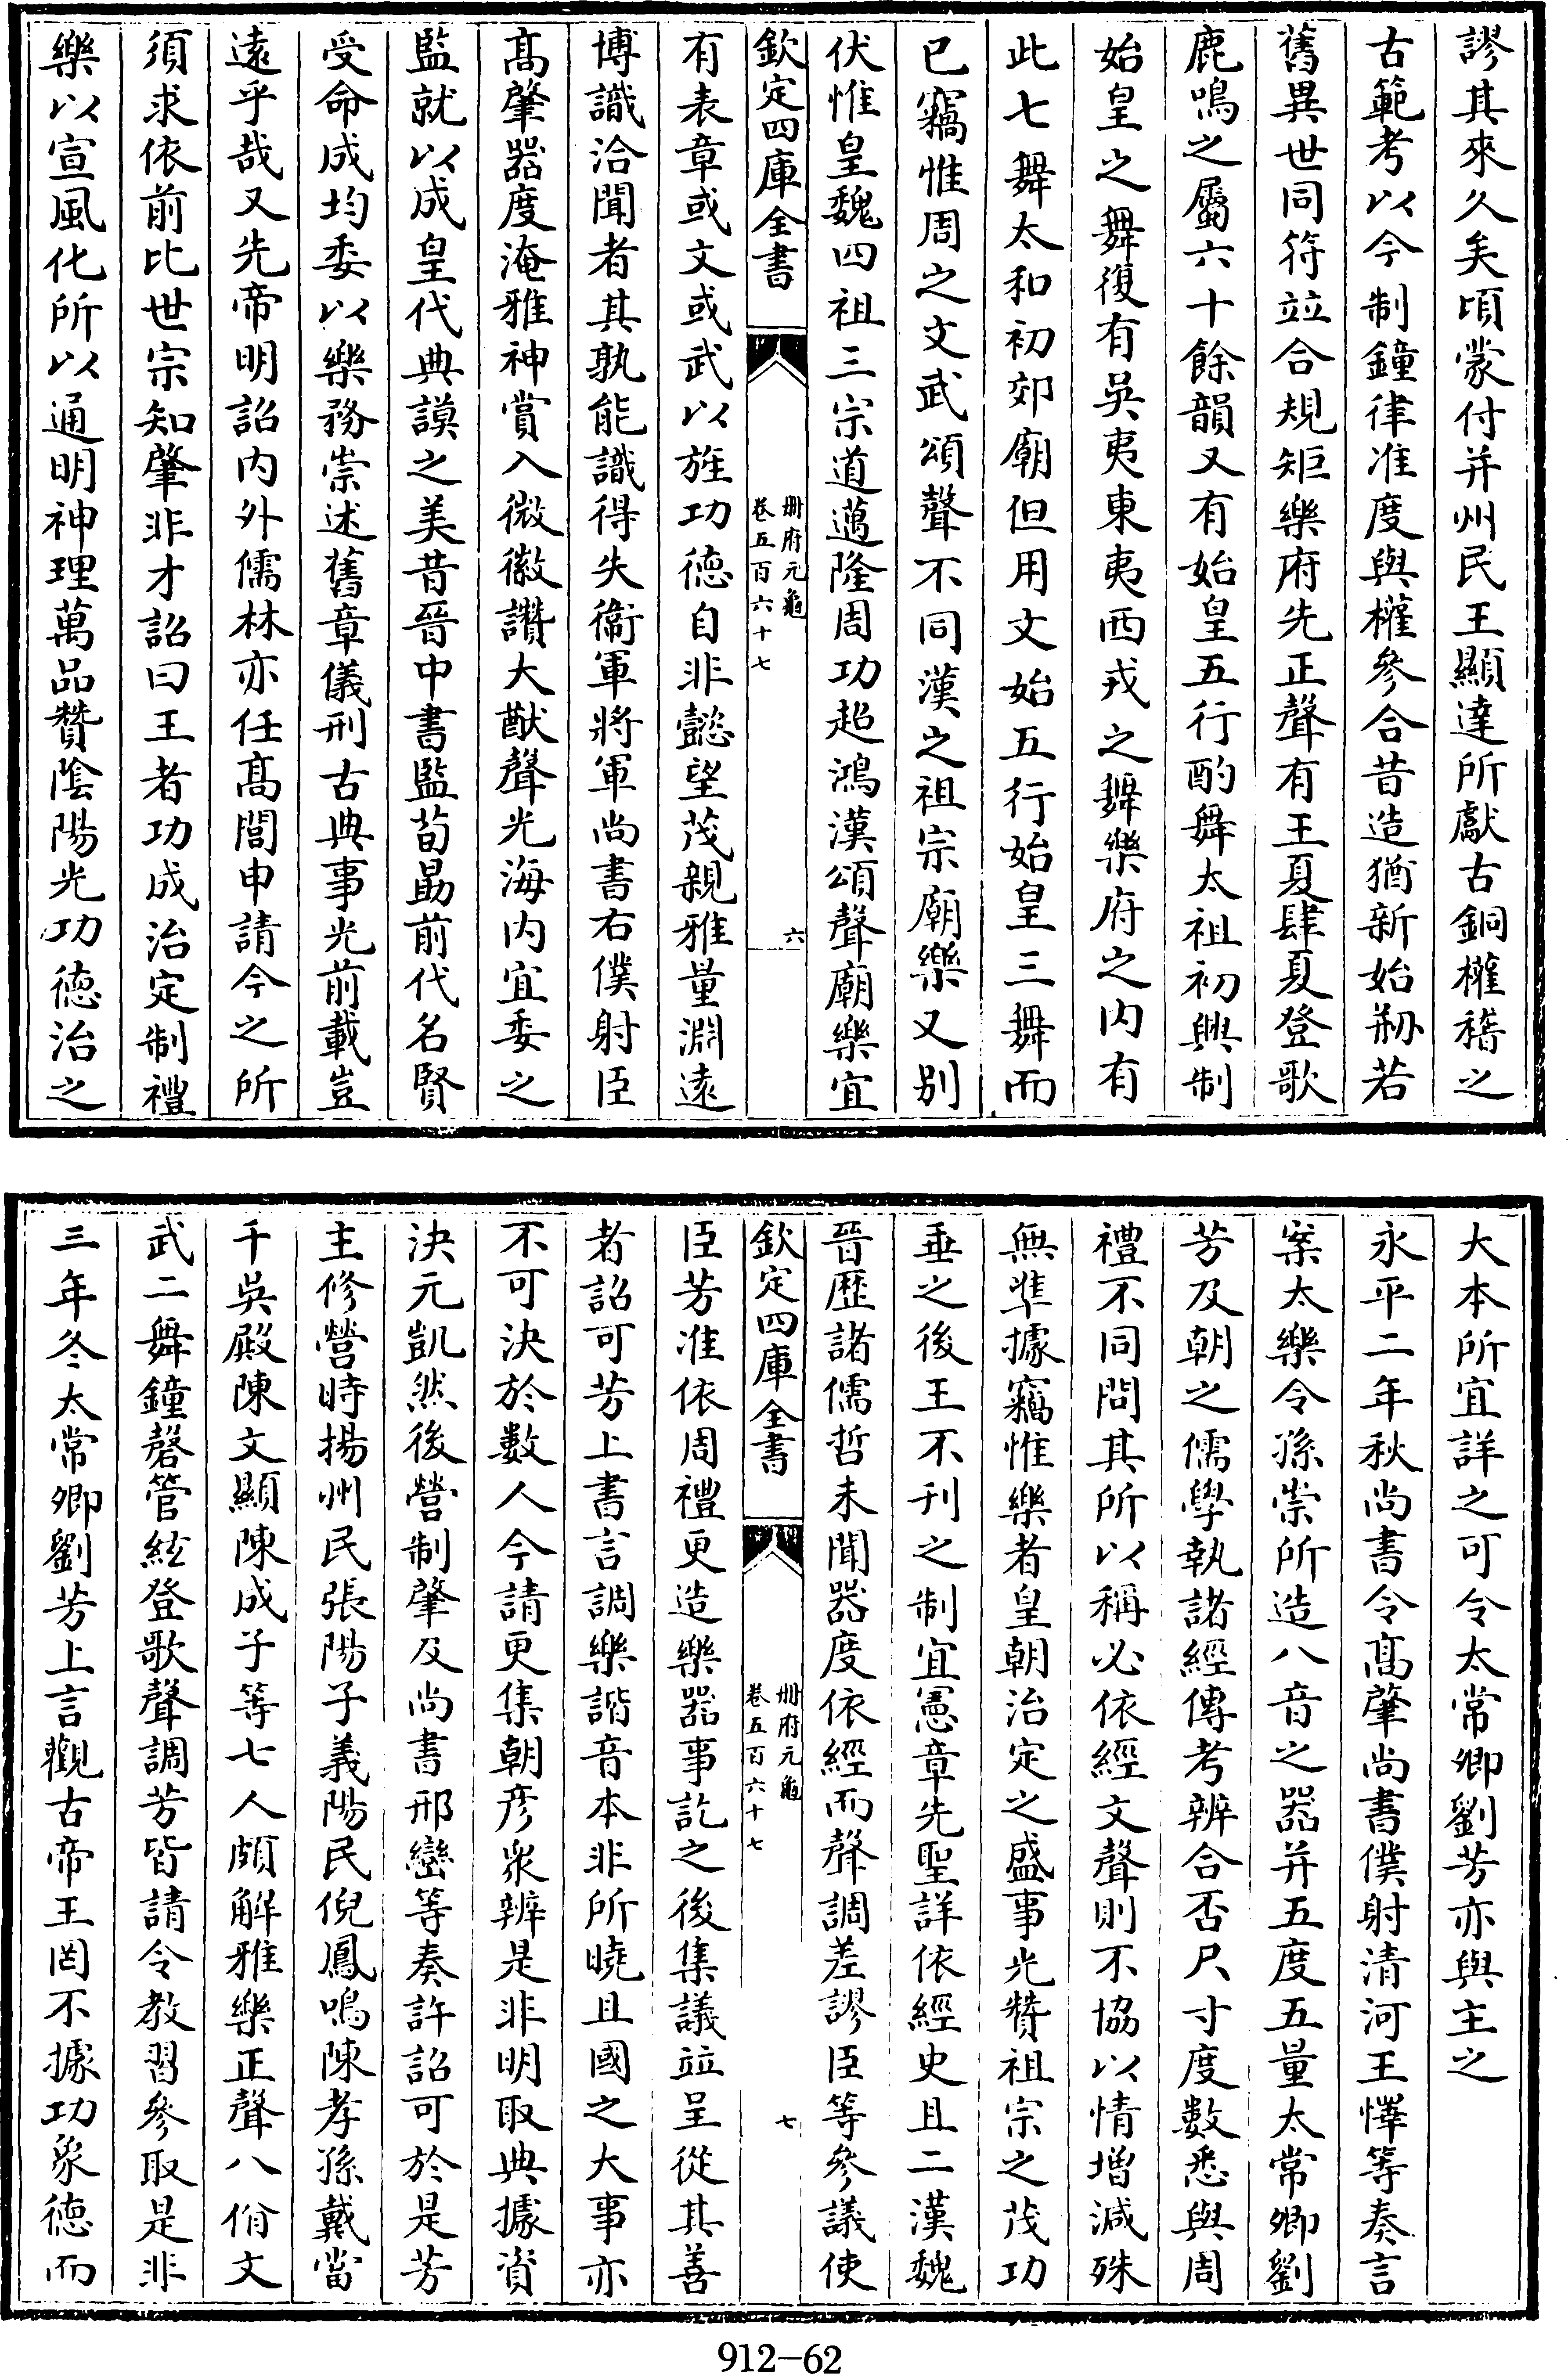 謬其來久矣頃蒙付并州民王顯達所獻古銅權稽之
古範考以今制鐘律准度與權參合昔造猶新始刱若
舊異世同符竝合規矩樂府先正聲有王夏肆夏登歌
鹿鳴之屬六十餘韻又有始皇五行酌舞太祖初興制
始皇之舞復有吳夷東夷西戎之舞樂府之內有
此七舞太和初郊廟但用文始五行始皇三舞而
已竊惟周之文武頌聲不同漢之祖宗廟樂又别
伏惟皇魏四祖三宗道邁隆周功超鴻漢頌聲廟樂宜
欽定四庫全書
冊府元龜
卷五百六十七
六
有表章或文或武以旌功徳自非懿望茂親雅量淵遠
博識洽聞者其孰能識得失衞軍將軍尚書右僕射臣
髙肇器度淹雅神賞入微徽讚大猷聲光海内宜委之
監就以成皇代典謨之美昔晉中書監荀勗前代名賢
受命成均委以樂務崇述舊章儀刑古典事光前載豈
遠乎哉又先帝明詔内外儒林亦任髙閭申請今之所
須求依前比世宗知肇非才詔曰王者功成治定制禮
樂以宣風化所以通明神理萬品贊陰陽光功徳治之
大本所宜詳之可令太常卿劉芳亦與主之
永平二年秋尚書令髙肇尚書僕射清河王懌等奏言
案太樂令孫崇所造八音之器并五度五量太常卿劉
芳及朝之儒學執諸經傳考辨合否尺寸度數悉與周
禮不同問其所以稱必依經文聲則不協以情增減殊
無凖據竊惟樂者皇朝治定之盛事光贊祖宗之茂功
垂之後王不刋之制宜憲章先聖詳依經史且二漢魏
晉歴諸儒哲未聞器度依經而聲調差謬臣等參議使
欽定四庫全書
冊府元龜
卷五百六十七
七
臣芳准依周禮更造樂器事訖之後集議竝呈從其善
者詔可芳上書言調樂諧音本非所曉且國之大事亦
不可決於數人今請更集朝彦衆辨是非明取典據資
決元凱然後營制肇及尚書邢巒等奏許詔可於是芳
主修營時揚州民張陽子義陽民倪鳳鳴陳孝孫戴當
千吳殿陳文顯陳成子等七人頗解雅樂正聲八佾文
武二舞鐘磬管絃登歌聲調芳皆請令教習參取是非
三年冬太常卿劉芳上言觀古帝王罔不據功象徳而
912-62